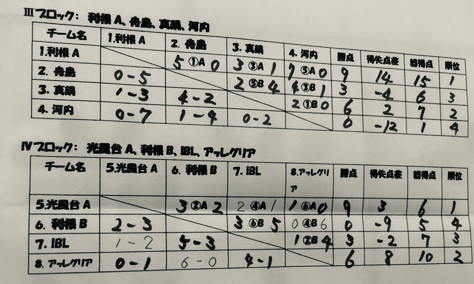 Ⅲブロック： 利根A、舟島、真鍋、河内
チーム名 1.利根A 2. 舟島 3. 真鍋 4. 河内 勝点 得失点差 総得点 順位
1.利根A 5 ①A 0 3 ③A 1 7 ⑤A 0 9 14 15 1
2. 舟島 0-5 2 ⑤B 4 4 ③B 1 3 -4 6 3
3. 真鍋 1-3 4-2 2 ①B 0 6 2 7 2
4. 河内 0-7 1-4 0-2 0 -12 1 4
Ⅳブロック： 光風台A、利根B、IBL、アッレグリア
チーム名 5.光風台A 6. 利根B 7. IBL 8.アッレグリア 勝点 得失点差 総得点 順位
5.光風台A 3 ②A 2 2 ④A 1 1 ⑥A 0 9 3 6 1
6. 利根B 2-3 3 ⑥B 5 0 ④B 6 0 -9 5 4
7. IBL 1-2 5-3 1 ②B 4 3 -2 7 3
8. アッレグリア 0-1 6-0 4-1 6 8 10 2